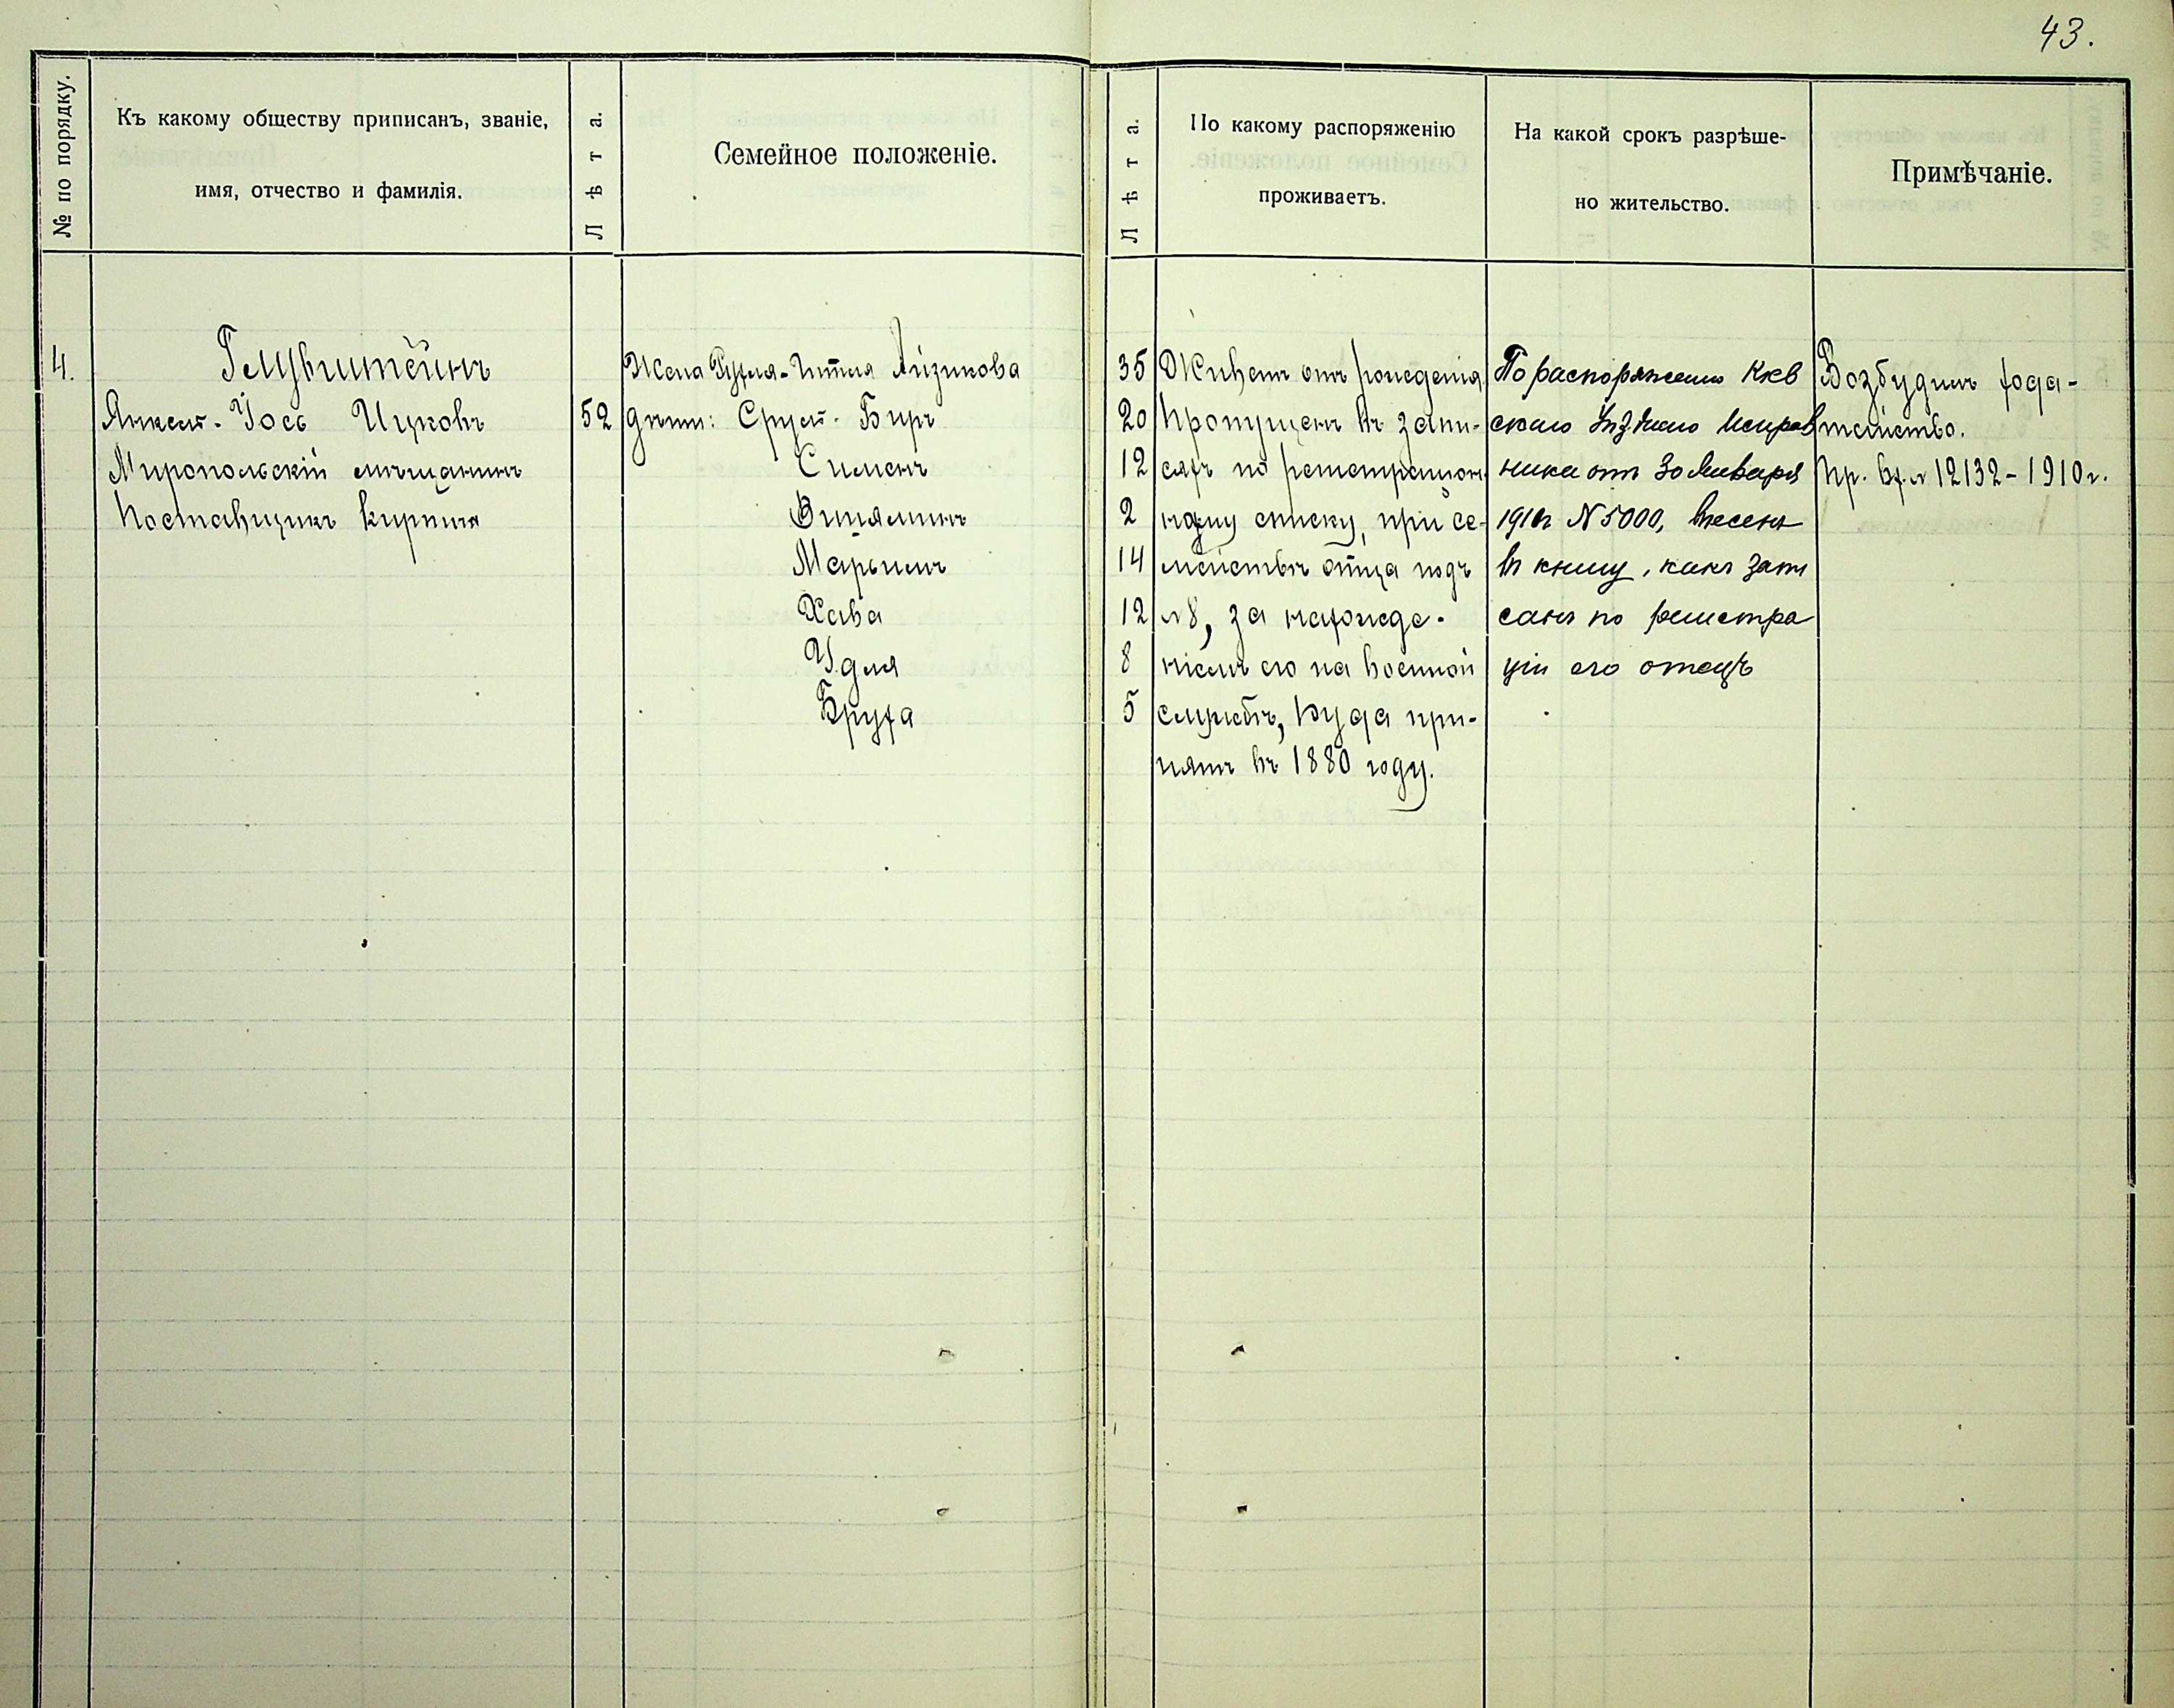 43.
№ по порядку.
Къ какому обществу приписанъ, званіе,
имя, отчество и фамилія.
Лѣта.
Семейное положеніе.
Лѣта.
По какому распоряженію
проживаетъ.
На какой срокъ разрѣше-
но жительство.
Примѣчаніе.
4.
Гельбштейнъ
Янкель-Іось Ицковъ
Миропольскій мѣщанинъ
Поставщикъ кирпича
52
Жена Рухля-Ителя Айзикова
дѣти: Сруль-Беръ
Сименъ
Виніяминъ
Марьимъ
Хава
Удля
Бруха
35
20
12
2
14
12
8
5
Живетъ отъ рожденія
Пропущенъ въ запи-
сяхъ по регистраціон-
ному списку, при се-
мействѣ отца подъ
№8, за нахожде-
ніемъ его на военной
службѣ, куда при-
нятъ въ 1880 году.
По распоряженію Кіев
скаго Уѣзднаго Исправ
ника отъ 30 Января
1910г №5000, внесенъ
въ книгу, какъ запи
санъ по регистра
ціи его отецъ
Возбудилъ хода-
тайство.
Пр. вх. № 12132-1910г.